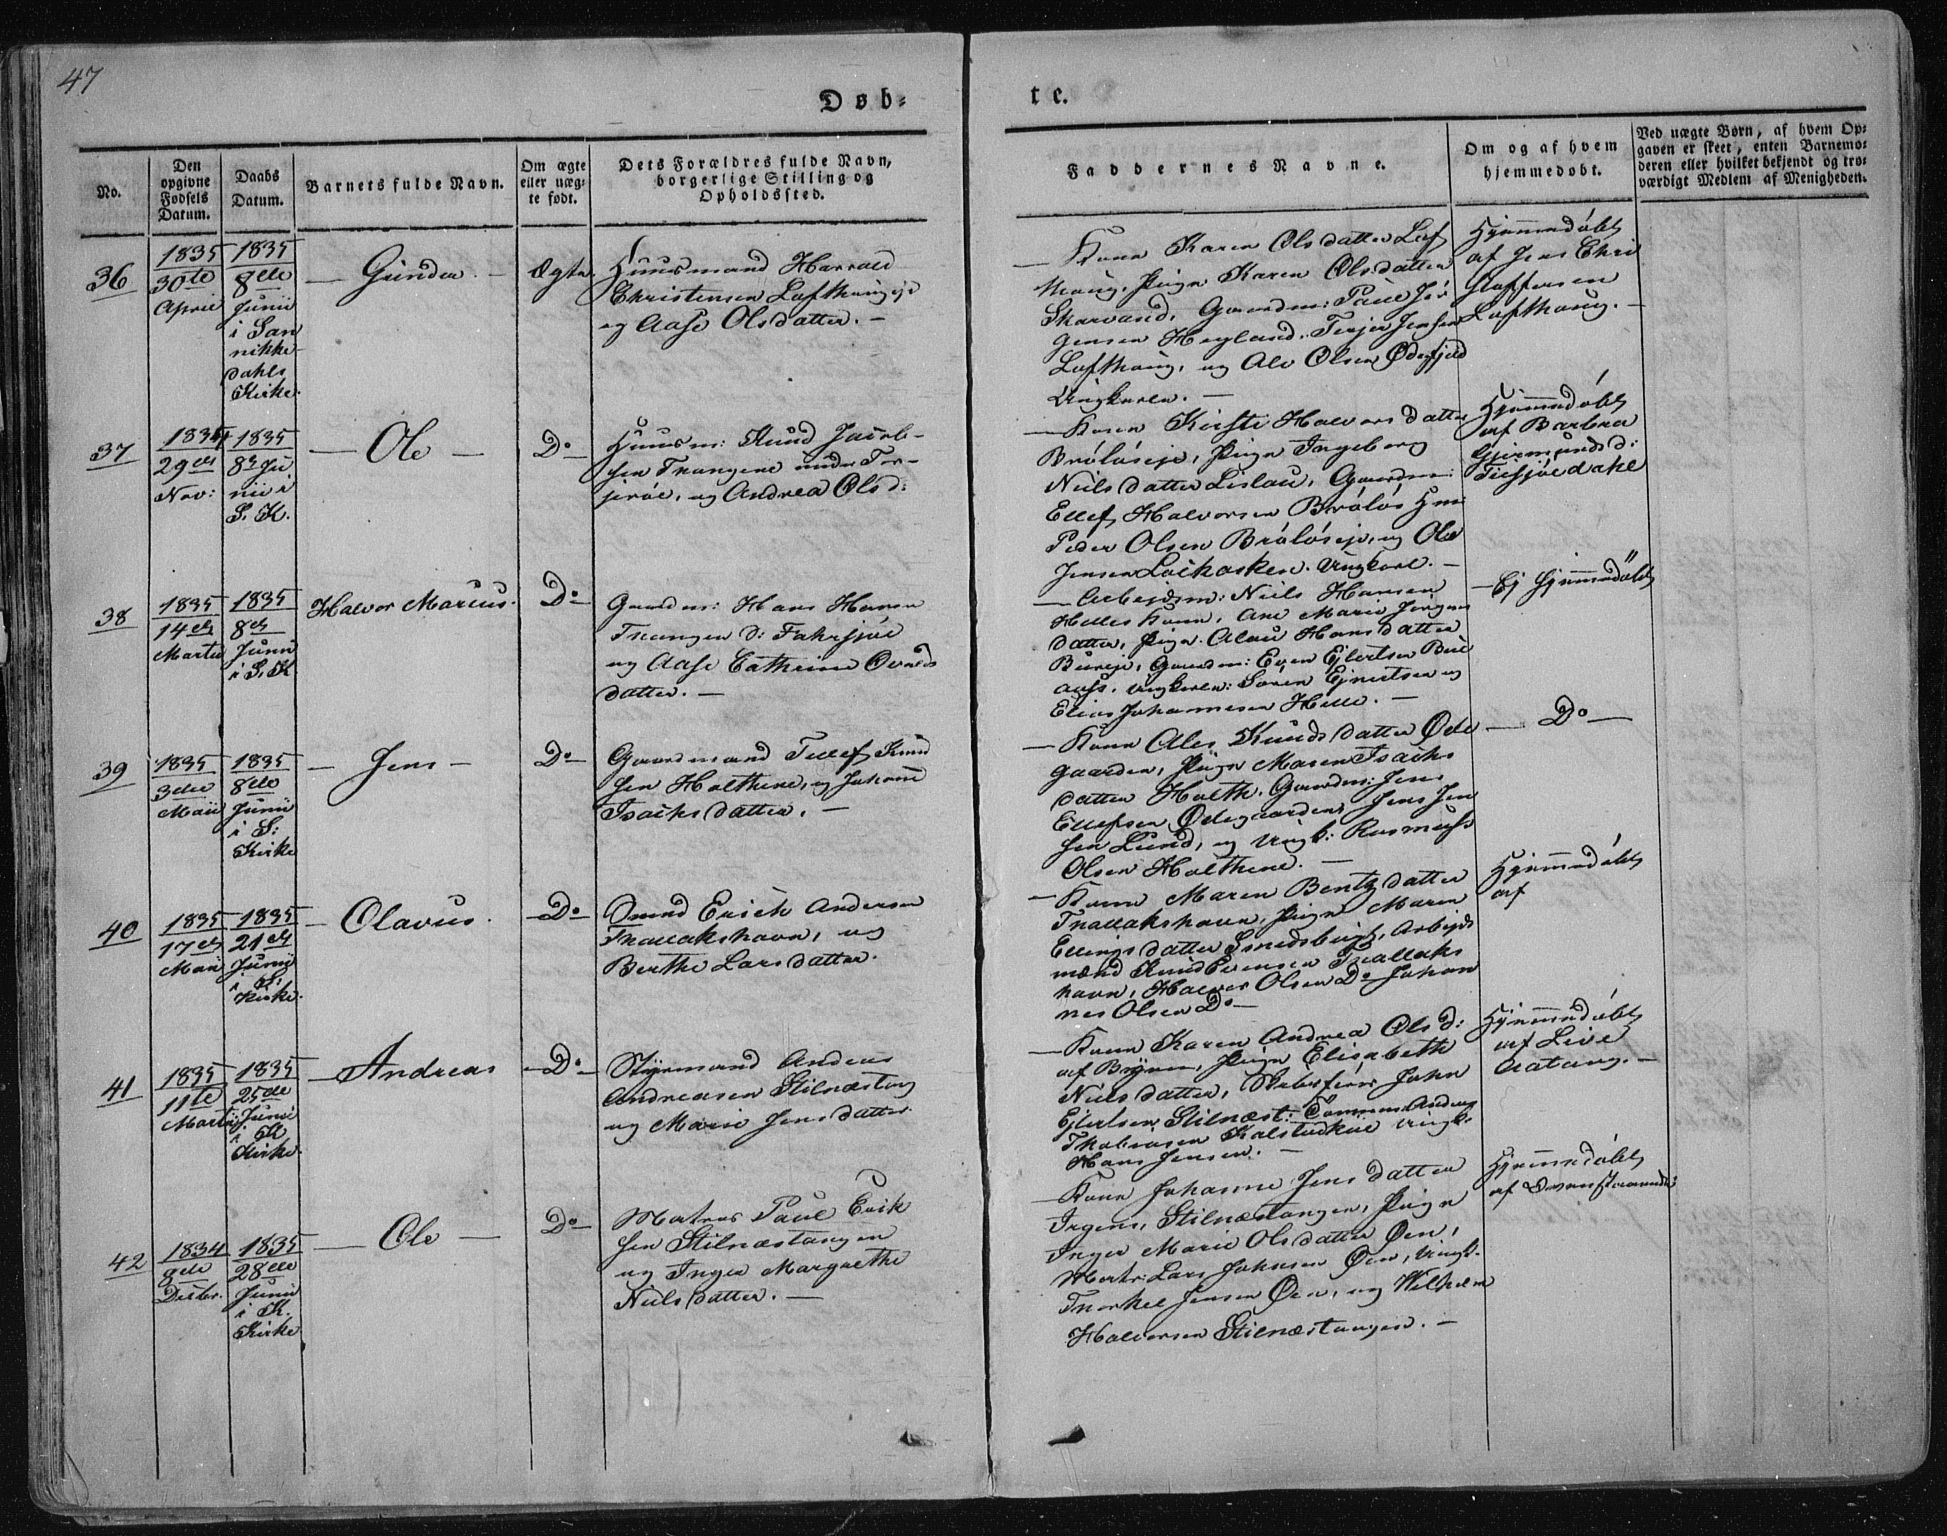 47
Døb=
te.
No.
Den opgivne Fødsels Datum.
Daabs Datum.
Barnets fulde Navn.
Om ægte eller uæg= te født.
Dets Forældres fulde Navn, borgerlige Stilling og Opholdssted.
Faddernes Navne.
Om og af hvem hjemmedøbt.
Ved uægte Børn, af hvem Op= gaven er skeet, enten Barnemo= deren eller hvilket bekjendt og tro= værdigt Medlem af Menigheden.
36
1835
30te
April
1835
8de
Junii
i San
nikke-
dahls
Kirke.
— Gunder —
Ægte
Huusmand Harrald
Christensen Lofthaugeje
og Aase Olsdatter. —
— Kone Karen Olsdatter Lof
thaug, Pige Karen Olsdatter
Skarvand, Gaardm: Paul Jør
gensen Hegland, Terjer Jensen
Lofthaug, og Ole Olsen Ødefjeld
Ungkarle. —
Hjemmedøbt
af Jens Chri
stoffersen
Lofthaug. —
37
1834
29de
Nov:
1835
8de Ju
nii i
S. K.
— Ole —
Do
Huusm: Knud Jacob-
sen Trangene under Tor-
jeröe, og Andrea Olsd:
— Kone Kirsti Halvorsdatter
Bröløseje, Pige Ingeborg
Nielsdatter Lislau, Gaardm:
Ellef Halvorsen Bröløs Hm:
Peder Olsen Bröløseje, og Ole
Jensen Ungkarl. —
Hjemmedøbt
af Barbra
Gjermundsd:
38
1835
14de
Martii
1835
8de
Junii
i S. K
Halvor Marius.
Do
Gaardm: Hans Hansen
Trangen Farsjøe
og Aase Cathrine
datter. —
— Arbejdsm: Niels Hansen
Helles Kone, Ane Marie Jörgens
datter, Pige Hansdatter
Gaardm: Even Ejlertsen
Ungkarle: Sören Ejlertsen og
Elias Johannesen Helle. —
— Ej hjemmedøbt
39
1835
3die
Maii
1835
8de
Junii
i S:
Kirke
— Jens —
Do
Gaardmand Tellef Knud
sen Holthene, og Johane
Isaksdatter. —
— Kone Ales Knudsdatter Øde
gaarden, Pige Maren Isacks
datter Holth, Gaardm: Jens
Ellefsen Ødegaarden, Jens Jen
sen Lund, og Ungk: Rasmus
Olsen Holthene. —
— Do —
40
1835
17de
Maii
1835
21de
Junii
i S:
Kirke.
— Olavus.
— Do —
Smed Erich Andersen
Trallakshavn, og
Berthe Larsdatter.
— Kone Maren Bentzdatter
Trallakshavn, Pige Maren
Ellingsdatter Smedsbugt, Arbejds
mænd Knud Evensen Trallaks
havn, Halvor Olsen Do Johan
nes Olsen Do —
Hjemmedøbt
af
41
1835
11te
Martii
1835
25de
Junii
i K
Kirke.
— Andreas
— Do —
Styrmand Anders
Andreasen Stilnæstang
og Marie Jensdatter
— Kone Karen Andrea Olsd:
af Byen, Pige Elisabeth
Nielsdatter, Skibsfører John
Ejlertsen Stilnæst: Tømmerm: Anders
Thobiasen Kalstadkil Ungk:
Hans Jensen. —
Hjemmedøbt
af Live
Aatang. —
42
1834
8de
Decbr.
1835
28de
Junii
i K.
Kirke
— Ole —
Do —
Matros Paul Erik
sen Stilnæstangen
og Inger Margrethe
Nielsdatter. —
— Kone Johanne Jensdatter
Irgens, Stilnæstangen, Pige
Inger Marie Olsdatter Øen,
Matr: Lars Johnsen Øen, Ungk:
Thorkel Jensen Øen, og Wilhelm
Halvorsen Stilnæstangen. —
Hjemmedøbt
af